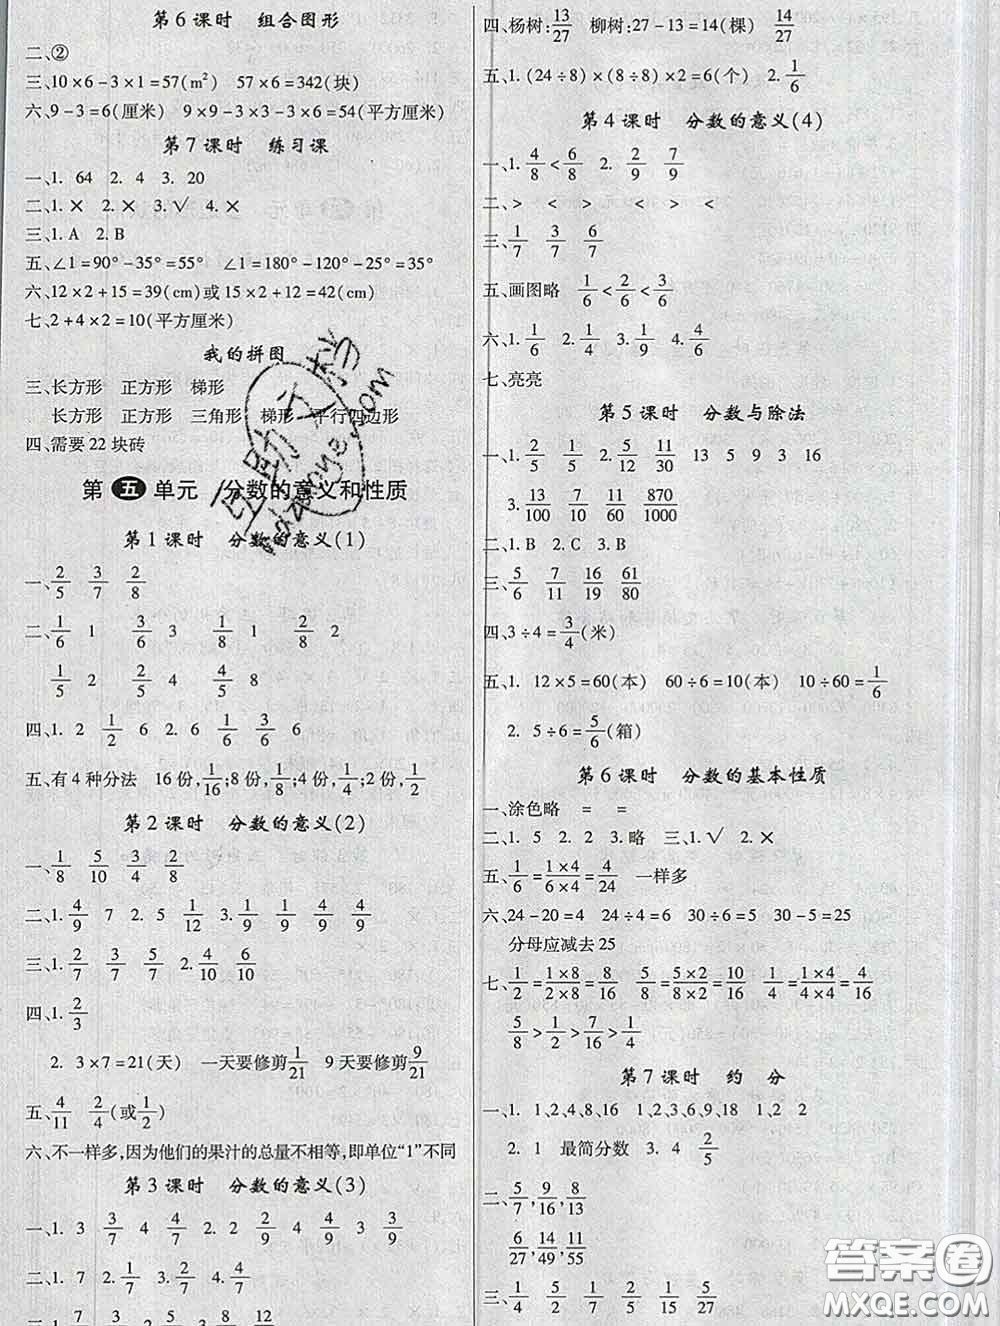 第6课时 组合图形
二、②
三、10×6-3×1=57(m²) 57×6=342(块)
六、9-3=6(厘米) 9×9-3×3-3×6=54(平方厘米)
第7课时 练习课
一、1. 64 2. 4 3. 20
二、1.× 2.× 3.√ 4.×
三、1. A 2. B
五、∠1=90°-35°=55° ∠1=180°-120°-25°=35°
六、12×2+15=39(cm)或15×2+12=42(cm)
七、2+4×2=10(平方厘米)
我的拼图
三、长方形 正方形 梯形
长方形 正方形 三角形 梯形 平行四边形
四、需要22块砖
第五单元 分数的意义和性质
第1课时 分数的意义(1)
一、2/5 3/7 2/8
二、1/6 1 3/6 3 1/8 1 2/8 2
1/5 2 2/5 4 4/8 8
四、1. 2 1/2 6 2. 6 1/6 3/6 6
五、有4种分法 16份,1/16;8份,1/8;4份,1/4;2份,1/2
第2课时 分数的意义(2)
一、1/8 5/10 3/4 2/8
二、1. 4/9 7 2. 5 1/12 3. 1/9 4/9 9/9
三、1. 2/7 3/7 2. 4/10 6/10
四、1. 2/3
2. 3×7=21(天) 一天要修剪1/21 9天要修剪9/21
五、4/11 2/4(或1/2)
六、不一样多,因为他们的果汁的总量不相等,即单位“1”不同
第3课时 分数的意义(3)
一、1. 3 3/7 4 4/7 2. 2 2/9 4 4/9 3 3/9
四、杨树:13/27 柳树:27-13=14(棵) 14/27
五、1. (24÷8)×(8÷8)×2=6(个) 2. 1/6
第4课时 分数的意义(4)
一、1. 4/8<6/8 2. 2/9 7/9
二、> < > < > <
三、1/7 3/7 6/7
五、画图略 1/6<2/6<3/6
六、1. 1/6 2. 1/4 3. 1/9 4. 4/6
七、亮亮
第5课时 分数与除法
一、1. 2/5 1/2 5/12 11/30 13 5 9 3 16
2. 13/100 7/10 11/30 870/1000
二、1. B 2. C 3. B
三、5/6 7/11 19/16 61/80
四、3÷4=3/4(米)
五、1. 12×5=60(本) 60÷6=10(本) 10÷60=1/6
2. 5÷6=5/6(箱)
第6课时 分数的基本性质
一、涂色略 = =
二、1. 5 2. 2 3. 略 三、1.√ 2.×
五、1/6=1×4/6×4=4/24 一样多
六、24-20=4 24÷4=6 30÷6=5 30-5=25
分母应减去25
七、1/2=1×8/2×8=8/16 5/8=5×2/8×2=10/16 1/4=1×4/4×4=4/16
5/8>1/2>7/16>1/4
第7课时 约分
一、1. 1,2,4,8,16 1,2,3,6,9,18 1,2 2
2. 1 最简分数 3. 4 2/5
二、5/7,9/16,8/13
6/27,14/49,11/55
三、1/4 2/5 5/12 5/27
答案圈
MXQE.COM